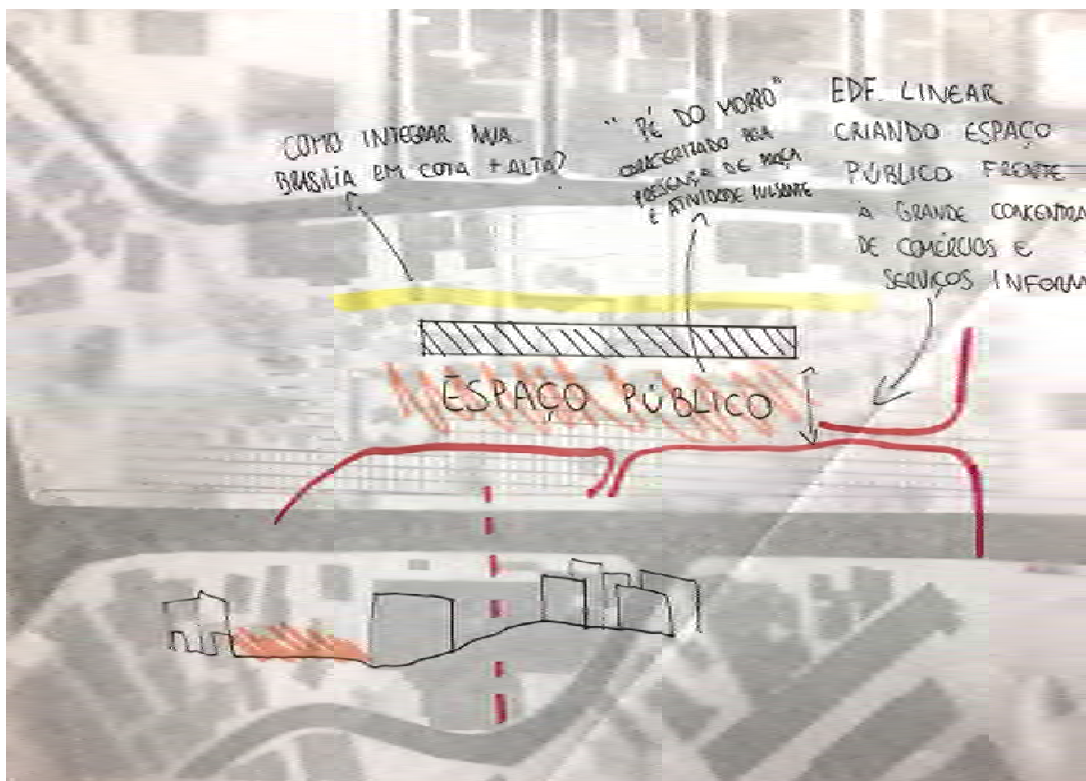 COMO INTEGRAR RUA
BRASÍLIA EM COTA + ALTA?
"PÉ DO MORRO"
CARACTERIZADO PELA
PRESENÇA DE PRAÇA
E ATIVIDADE PULSANTE
EDF. LINEAR
CRIANDO ESPAÇO
PÚBLICO FRENTE
À GRANDE CONCENTRA
DE COMÉRCIOS E
SERVIÇOS INFORMA
ESPAÇO PÚBLICO